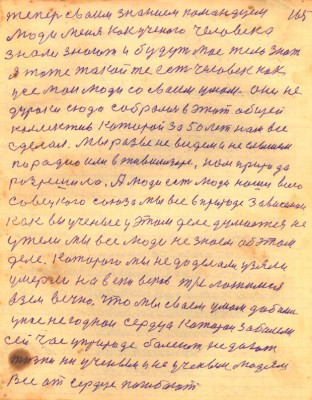 тепер своим знанием командуем 165
Люди меня как ученого человека
знали знают и будут мое тело знат
я тоже такой же ест человек как
усе мои люди со своим умом. они не
дураки сюда собрались в этот общей
коллектив Которой За 50 лет нам все
сделал. Мы разве не видем и не слышим
по радио или в тилевизоре, нам природа
розрешила. А люди ест люди нашего всего
Совецкого союза мы все в природе Зависими
Как вы ученые у этом деле думаете, не
ужели мы все люди не знаем об этом
деле, Которого мы не доделали узяли
умерли на веки веков
вечно. что мы своем умом
не годной сердца Которой заболели
сей час у природе болеют не дают
жизни ни ученым и не ученым людям
Все от сердце погибают